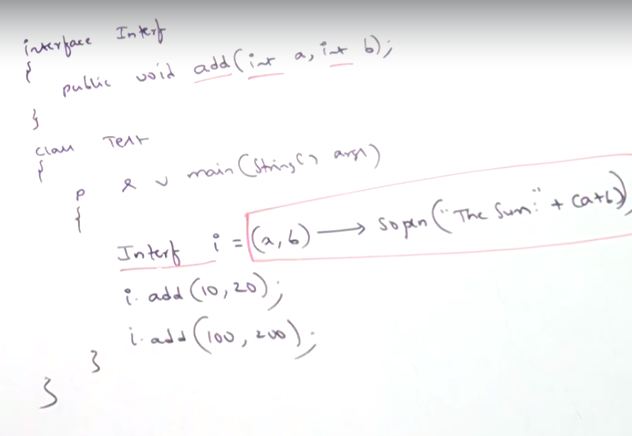 interface Interf
{
public void add(int a, int b);
}
class Test
{
p s v main(String[] args)
{
Interf i = (a,b) → sopln("The Sum:" + (a+b))
i. add (10, 20);
i. add (100, 200);
}
}